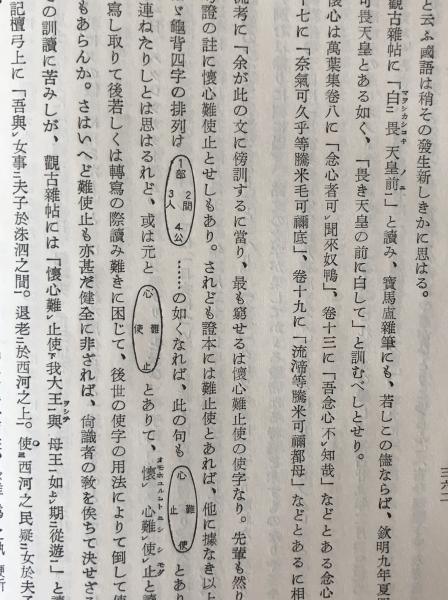 三六二
と云ふ國語は稍その發生新しきかに思はる。
觀古雜帖に「白畏天皇前」と讀み、寶馬盧雜筆にも、若しこの儘ならば、欽明九年夏
可畏天皇とある如く、「畏き天皇の前に白して」と訓むべしとせり。
懷心は萬葉集卷八に「念心者可聞來奴鴨」、卷十三に「吾念心不知哉」などとある念心
十七に「奈氣可久乎等騰米毛可禰底」、卷十九に「流渧等騰米可禰都母」などとあるに相
流考に「余が此の文に傍訓するに當り、最も窮せるは懷心難使止の使字なり。先輩も然り
考證の註に懷心難使止とせしもあり。されども證本には難使止とあれば、他に據なき以上
龜背四字の排列は 1部 2間 3人 4公 ……の如くなれば、此の句も 心 難 止 使 とあり
連ねたりしとは思はるれど、或は元と 心 難 使 止 とありて、懷心難使止と讀
寫し取りて後若しくは轉寫の際讀み難きに困じて、後世の使字の用法によりて倒して使
もあらんか。さはいへど難使止も亦甚だ健全に非されば、尙識者の敎を俟ちて決せざる
その訓讀に苦みしが、觀古雜帖には「懷心難止使我大王與母王如期從遊」と讀
記檀弓上に「吾與女事夫子於洙泗之間。退老於西河之上。使西河之民疑女於夫子